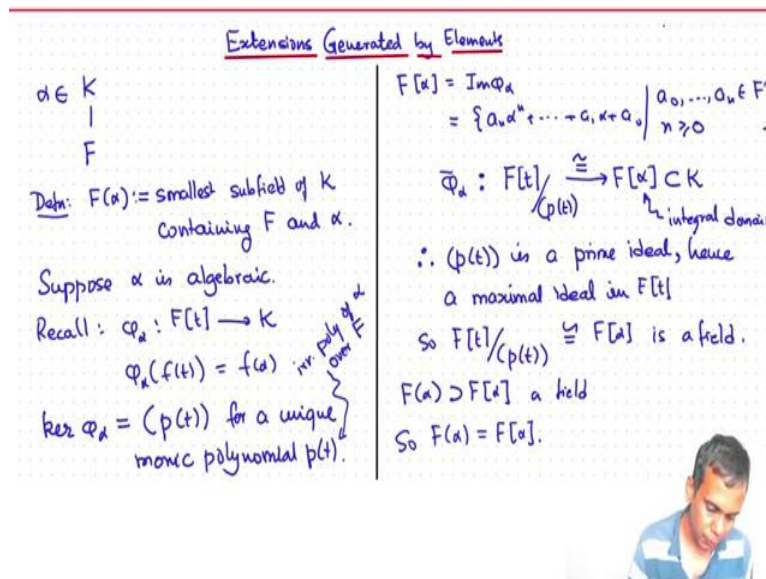 Extensions Generated by Elements
α ∈ K
|
F
Defn: F(α) := smallest subfield of K
containing F and α.
Suppose α is algebraic.
Recall: φ_α : F[t] → K
φ_α(f(t)) = f(α)
irr. poly of α
over F
ker φ_α = (p(t)) for a unique
monic polynomial p(t).
F[α] = Im φ_α
= {a_n α^n + ⋯ + a_1 α + a_0 | a_0, ..., a_n ∈ F
n ≥ 0
φ̄_α : F[t]/(p(t)) ≅→ F[α] ⊂ K
integral domain
∴ (p(t)) is a prime ideal, hence
a maximal ideal in F[t]
So F[t]/(p(t)) ≅ F[α] is a field.
F(α) ⊃ F[α] a field
So F(α) = F[α].